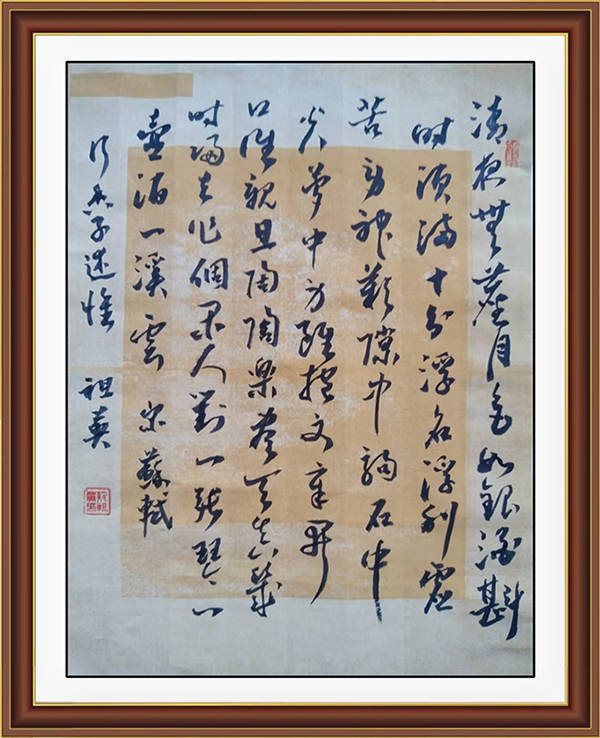 清夜無塵月色如銀酒斟
时須满十分浮名浮利虚
苦劳神歎隙中駒石中
火夢中身雖抱文章開
口谁親且陶陶樂盡天真幾
时歸去作個閑人對一張琴一
壺酒一溪雲 宋蘇軾
行香子述懷 祖